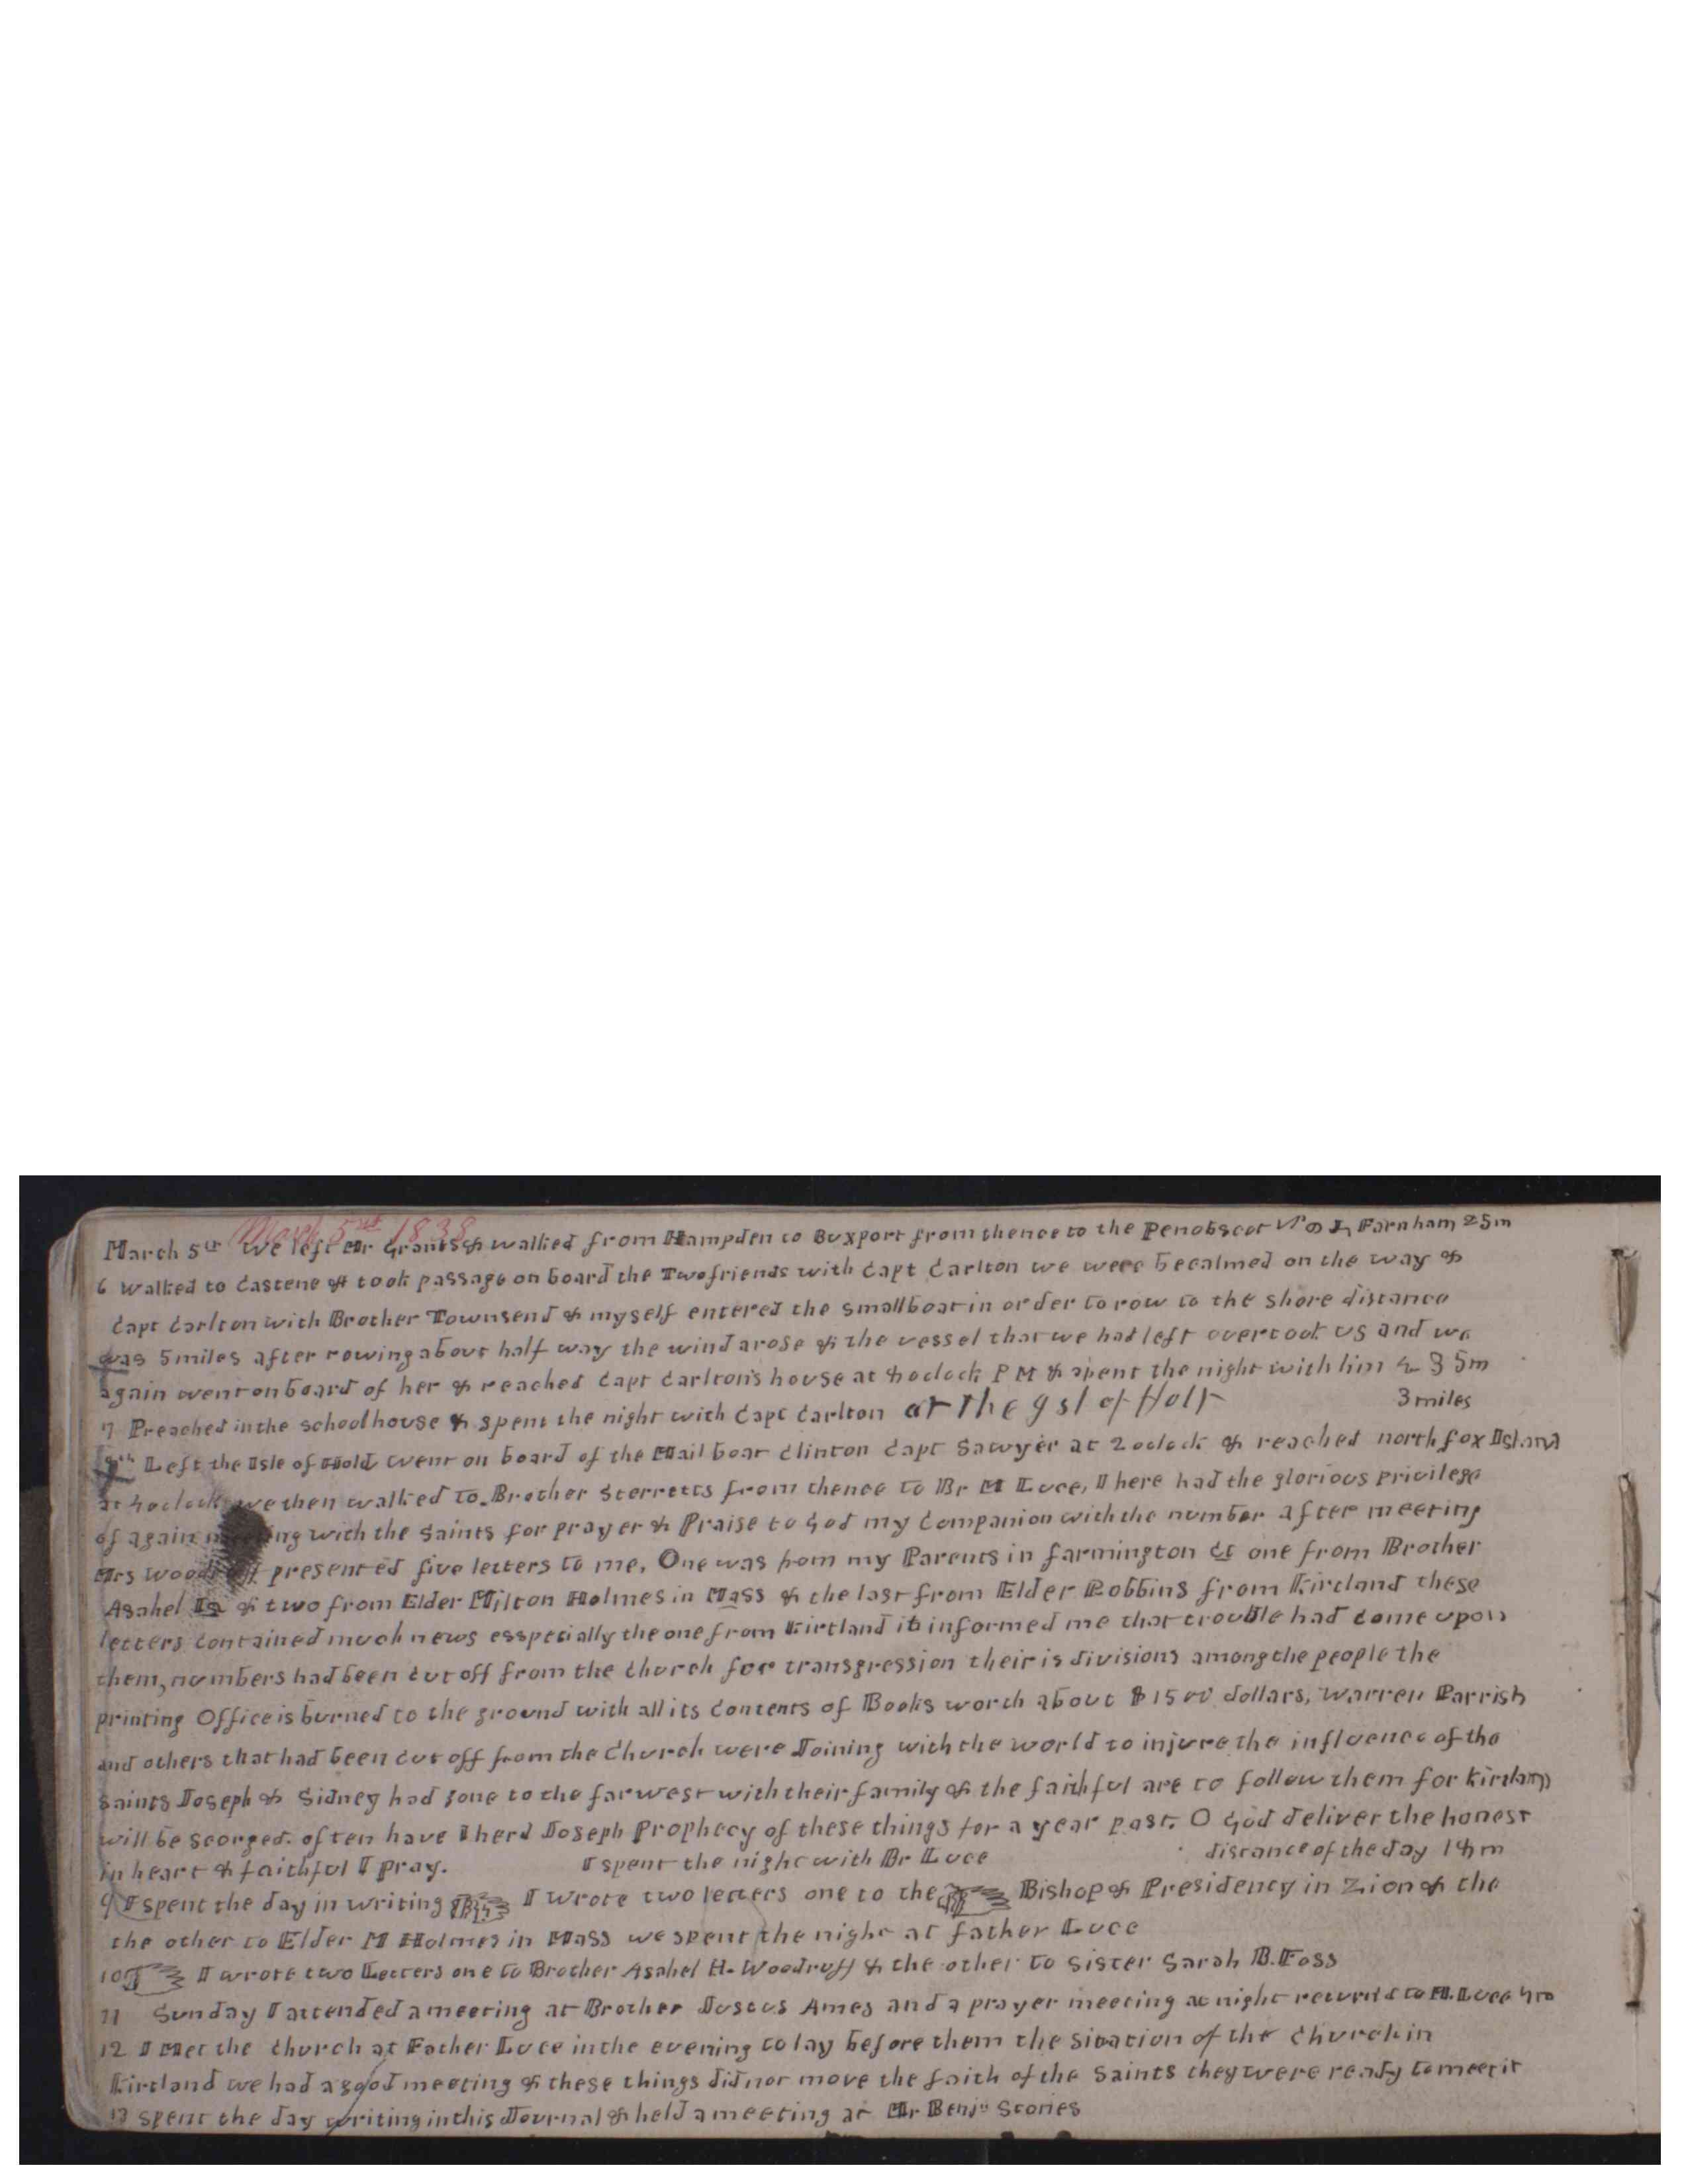 March 5th 1838
March 5th We left Mr Grants & walked from Hampden to Buxport from thence to the Penobscot Farnham 25m
6 Walked to Castene & took passage on board the Two friends with Capt Carlton we were becalmed on the way &
Capt Carlton with Brother Townsend & myself entered the small boat in order to row to the shore distance
was 5 miles after rowing about half way the wind arose & the vessel that we had left overtook us and we
again went on board of her & reached Capt Carlton's house at 8 oclock P M & spent the night with him
7 Preached in the school house & spent the night with Capt Carlton at the Isl of Holt 3 miles
8th Left the Isle of Hold went on board of the Mail boat Clinton Capt Sawyer at 2 oclock & reached north fox Island
at 4 oclock we then walked to Brother Sterretts from thence to Br M Luce, I here had the glorious privilege
of again meeting with the Saints for prayer & Praise to God my Companion with the number after meeting
Mrs Woodruff presented five letters to me. One was from my Parents in farmington Ct one from Brother
Asahel Ia & two from Elder Milton Holmes in Mass & the last from Elder Robbins from Kirtland these
letters Contained much news esspecially the one from Kirtland it informed me that trouble had Come upon
them, numbers had been Cut off from the Church for transgression their is divisions among the people the
printing Office is burned to the ground with all its Contents of Books worth about $1500 dollars, Warren Parrish
and others that had been Cut off from the Church were Joining with the world to injure the influence of the
saints Joseph & Sidney had gone to the far west with their family & the faithful are to follow them for Kirtland
will be scorged. often have I herd Joseph Prophecy of these things for a year past. O God deliver the honest
in heart & faithful I pray. I spent the night with Br Luce distance of the day 18 m
9 I spent the day in writing I wrote two letters one to the Bishop & Presidency in Zion & the
the other to Elder M Holmes in Mass we spent the night at father Luce
10 I wrote two Letters one to Brother Asahel H. Woodruff & the other to Sister Sarah B. Foss
11 Sunday I attended a meeting at Brother Justus Ames and a prayer meeting at night returnd to M. Luce 4m
12 I Met the Church at Father Luce in the evening to lay before them the situation of the Church in
Kirtland we had a good meeting & these things did not move the faith of the Saints they were ready to meet it
13 spent the day writing in this Journal & held a meeting at Mr Benjn Stories